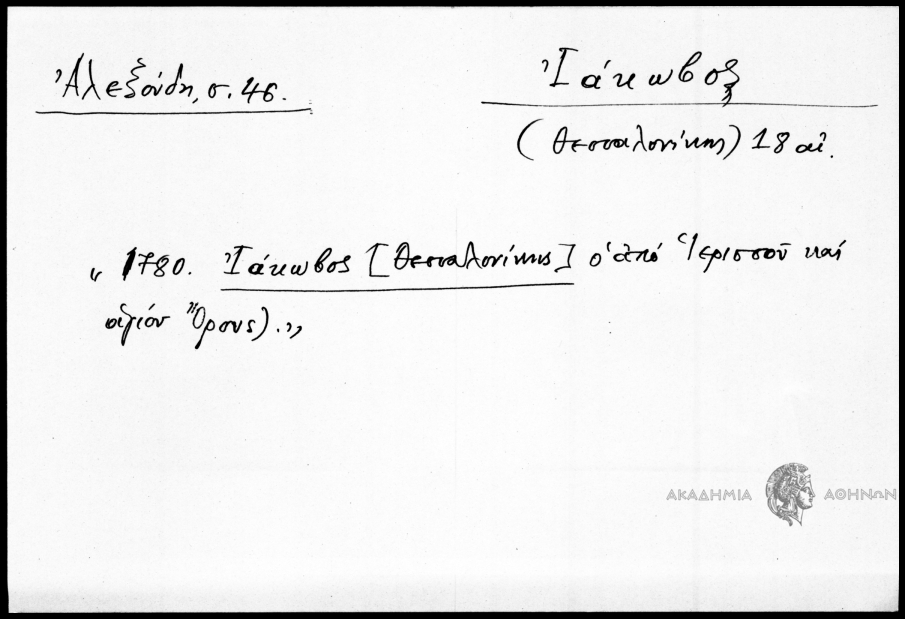 Ἀλεξούδη, σ. 46.
Ἰάκωβος
(Θεσσαλονίκης) 18 αἰ.
„ 1780. Ἰάκωβος [Θεσσαλονίκης] ὁ ἀπό Ἱερισσοῦ καί
ἁγίου Ὄρους).„
ΑΚΑΔΗΜΙΑ ΑΘΗΝΩΝ